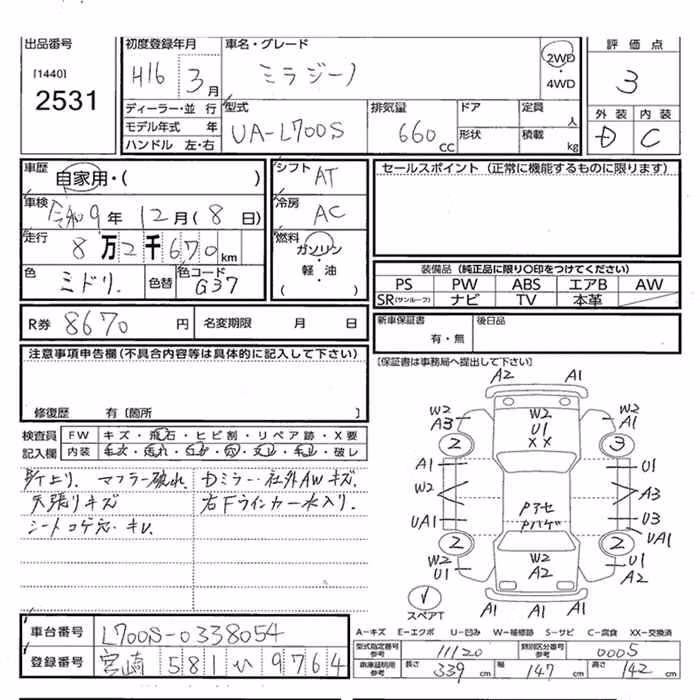 出品番号
[1440]
2531
初度登録年月
H16 3月
車名・グレード
ミラジーノ
2WD
・
4WD
評価点
3
外装 内装
D C
ディーラー・並行
モデル年式 年
ハンドル 左・右
型式
UA-L700S
排気量
660 CC
ドア
形状
定員 人
積載 kg
車歴
自家用・( )
車検
令和9年 12月(8日)
走行
8万2千670km
色
ミドリ. 色替
色コード
G37
シフト AT
冷房 AC
燃料
ガソリン
・
軽・油
( )
セールスポイント (正常に機能するものに限ります)
装備品 (純正品に限り○印をつけてください)
PS PW ABS エアB AW
SR(サンルーフ) ナビ TV 本革
R券 8670円 名変期限 月 日
新車保証書
有・無
後日品
[保証書は事務局へ提出して下さい]
注意事項申告欄(不具合内容等は具体的に記入して下さい)
修復歴 有〔箇所 〕
検査員 FW キズ・飛石・ヒビ割・リペア跡・X要
記入欄 内装
・破レ
マフラー破れ. Dミラー・社外AWキズ.
天張りキズ 右Fウインカー水入り.
シートコゲ穴・キレ
A2 A1
W2
A3
2
W2
U1
XX
W2
A1
3
A1
U1
W2
A3
UA1
U3
UA1
2
W2
U1
W2
A2
2
U1
A2
A1 A1 A1
スペアT
A-キズ E-エクボ U-凹み W-補修跡 S-サビ C-腐食 XX-交換済
車台番号 L700S-0338054
登録番号 宮崎 581 い 9764
型式指定番号
参考
11120
類別区分番号
参考
0005
車庫証明用
参考
長さ 339 cm 幅 147 cm 高さ 142 cm